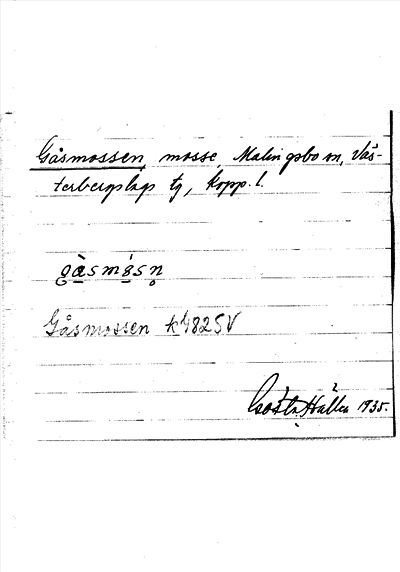 Gåsmossen, mosse, Malingsbo sn, Väs-
terbergslags tg, Kopp. l.
gàsmósn
Gåsmossen 482SV
Gösta Hallén 1935.